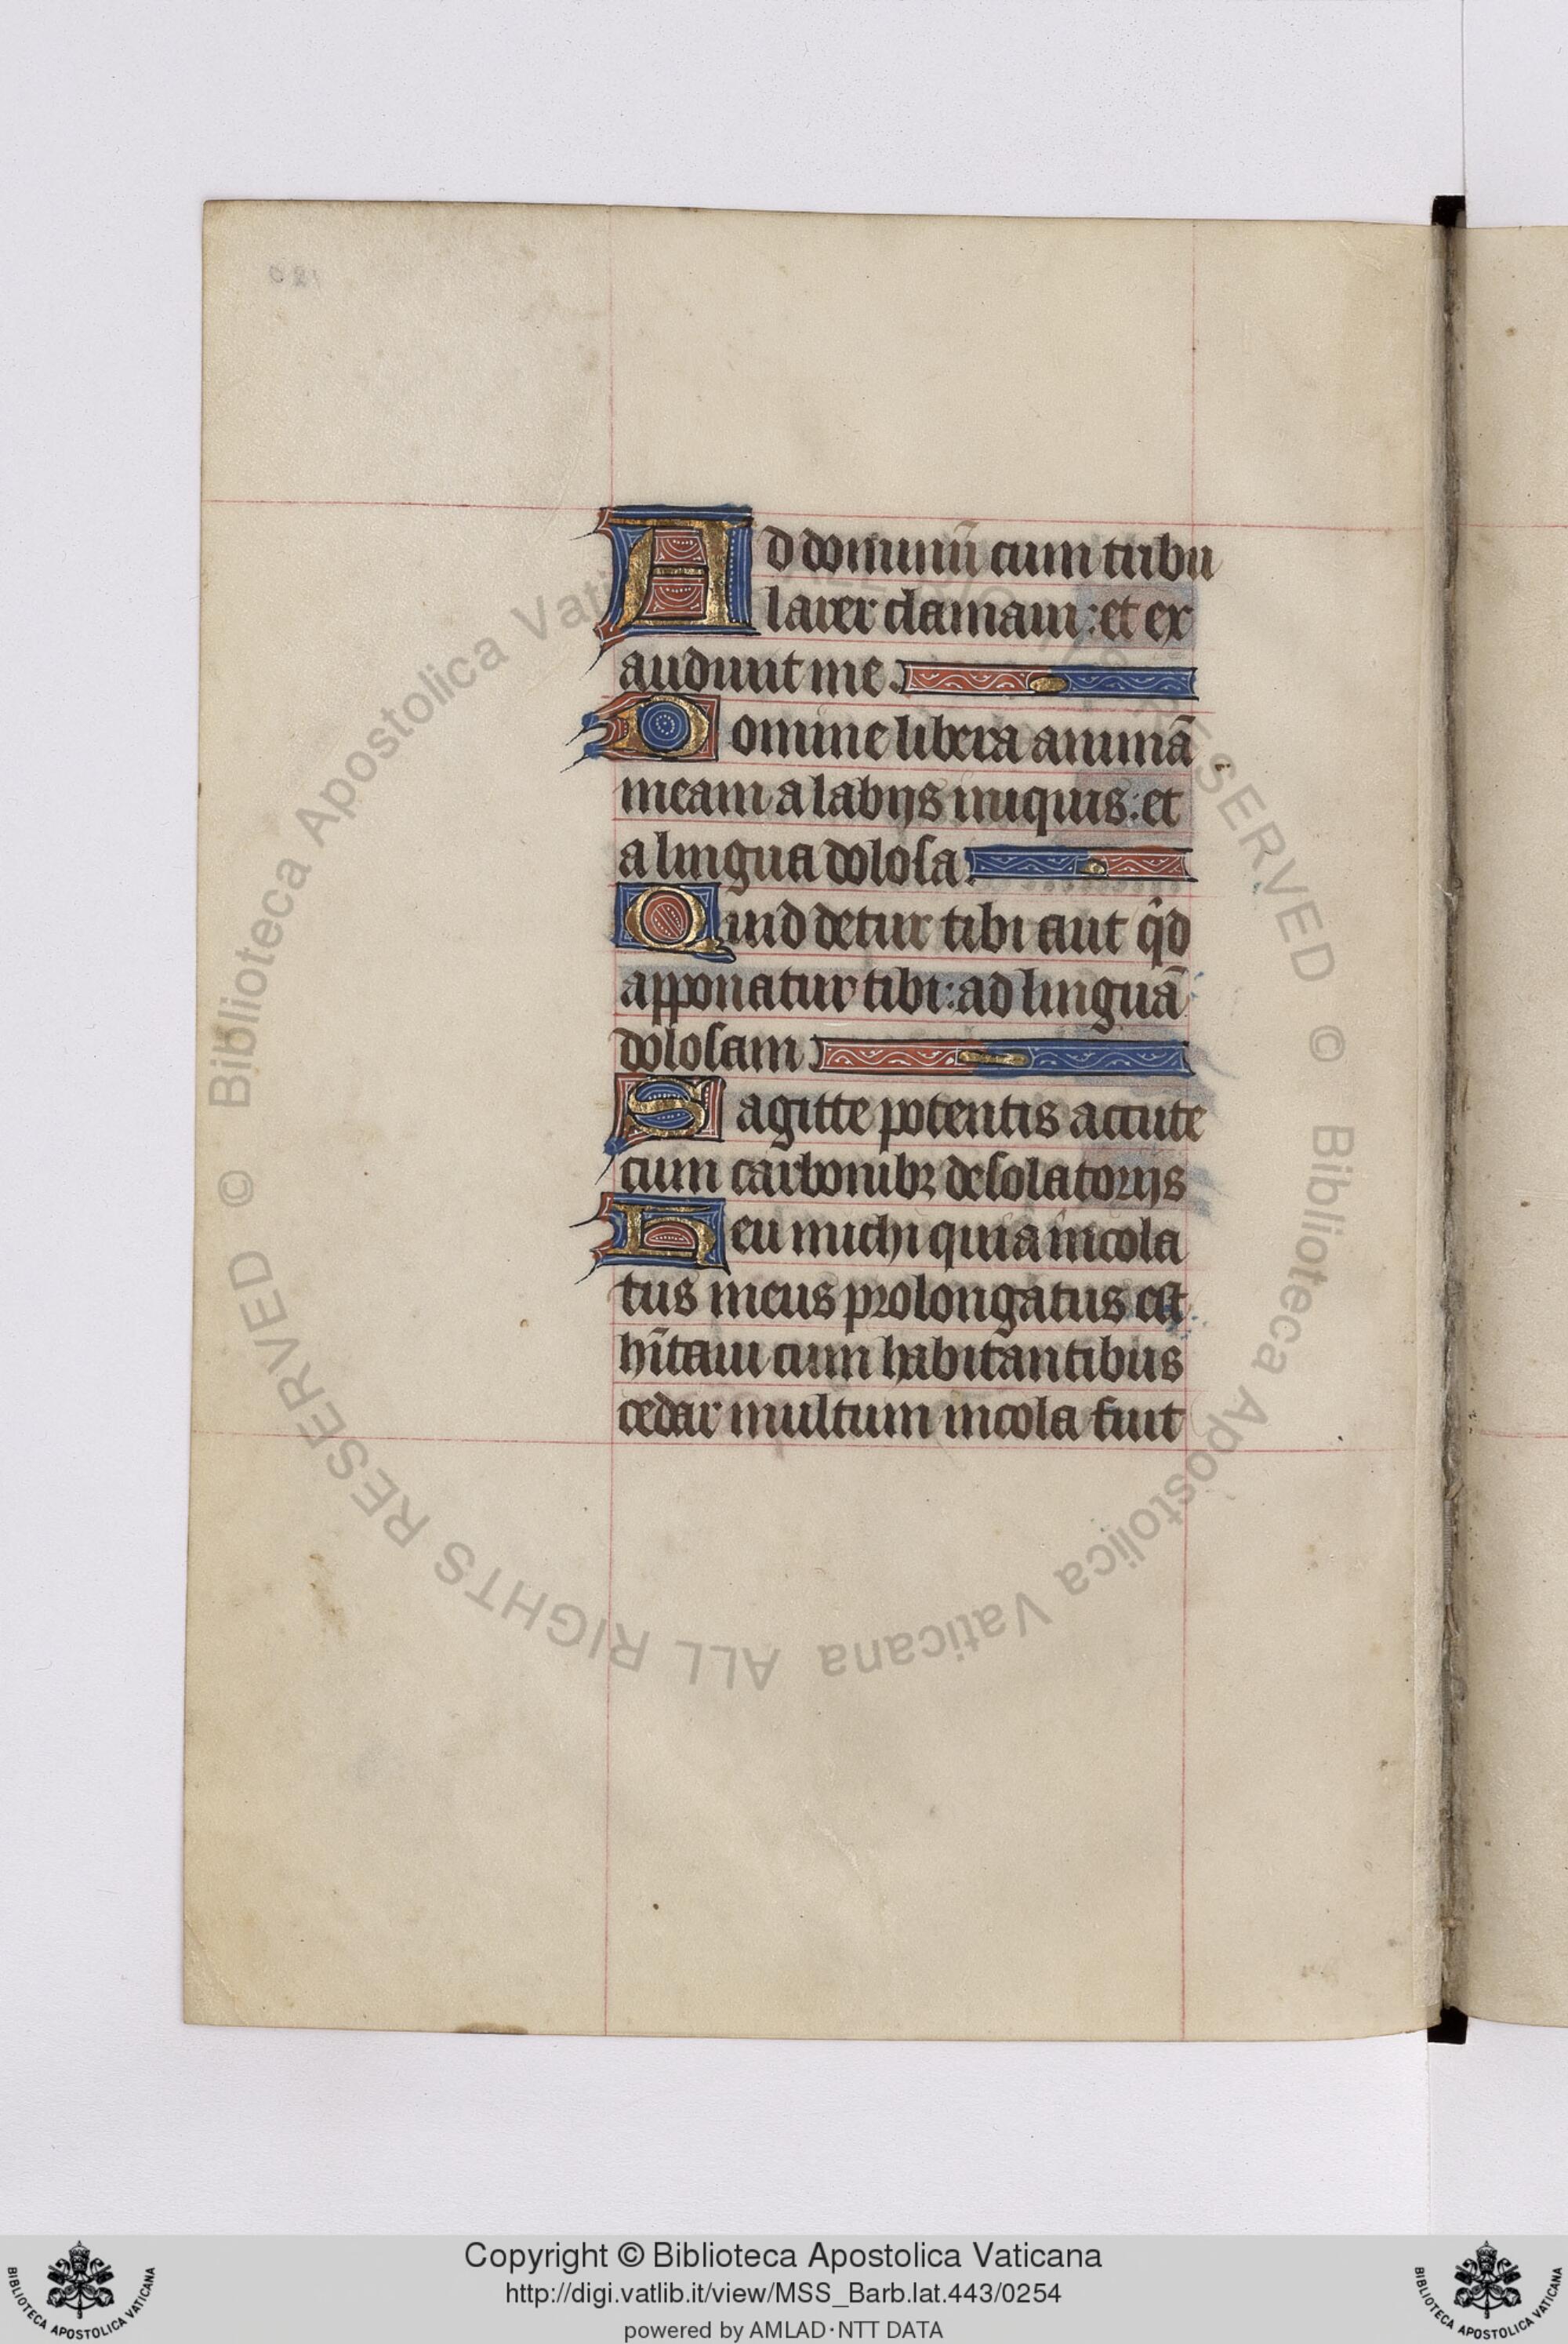 Ad dominū cum tribu
larer clamaui: et ex
audiuit me.
Domine libera animā
meam a labijs iniquis: et
a lingua dolosa.
Quid detur tibi aut qͥd
apponatur tibi: ad linguā
dolosam
Sagitte potentis acute
cum carbonibꝫ desolatorijs
Heu michi quia incola
tus meus prolongatus est
hītaui cum habitantibus
cedar multum incola fuit
© Biblioteca Apostolica Vaticana ALL RIGHTS RESERVED
© Biblioteca Apostolica Vaticana ALL RIGHTS RESERVED
Copyright © Biblioteca Apostolica Vaticana
http://digi.vatlib.it/view/MSS_Barb.lat.443/0254
powered by AMLAD·NTT DATA
BIBLIOTECA APOSTOLICA VATICANA
BIBLIOTECA APOSTOLICA VATICANA